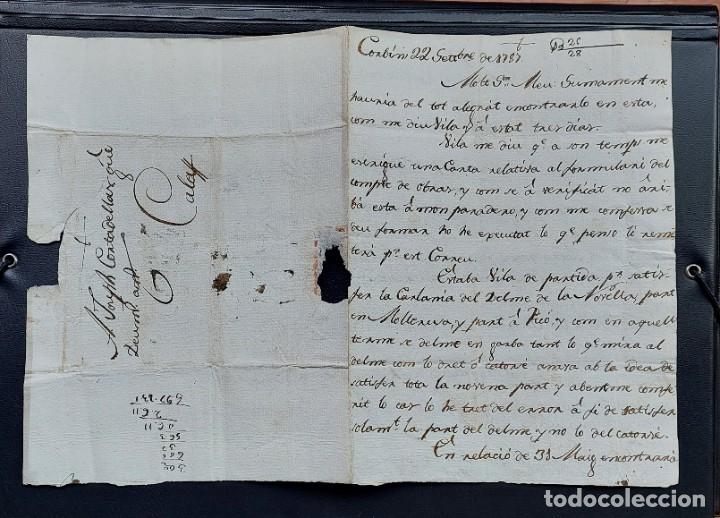 Corbins 22 Setbre de 1787
Molt Sr. Meu: Sumament me
hauria del tot alegrat encontrarlo en esta,
com me diu Vila y á estat tres dias.
Vila me diu qe. a son temps me
escrigué una Carta relativa al formulari del
compte de obras, y com se á verificát no arri-
bá esta á mon paradero, y com me confessa se
deu formar ho he executat lo qe. penso li reme-
terá pr. est Correu.
Estaba Vila de partida pr. satis-
fer la Carlania del Delme de la Novella part
en Mollerusa, y part á Picó, y com en aquell
terme se delme en garba tant lo qe. mira al
delme com lo dret ó catorsé anava ab la idea de
satisfer tota la novena part y abentme confe-
rit lo cas lo he tret del error á fi de satisfer
solamt. la part del delme y no lo del catorsé.
En relació de 31 Maig encontrará
A Joseph Contadellas gde.
Calaf
26
28
todocoleccion.net